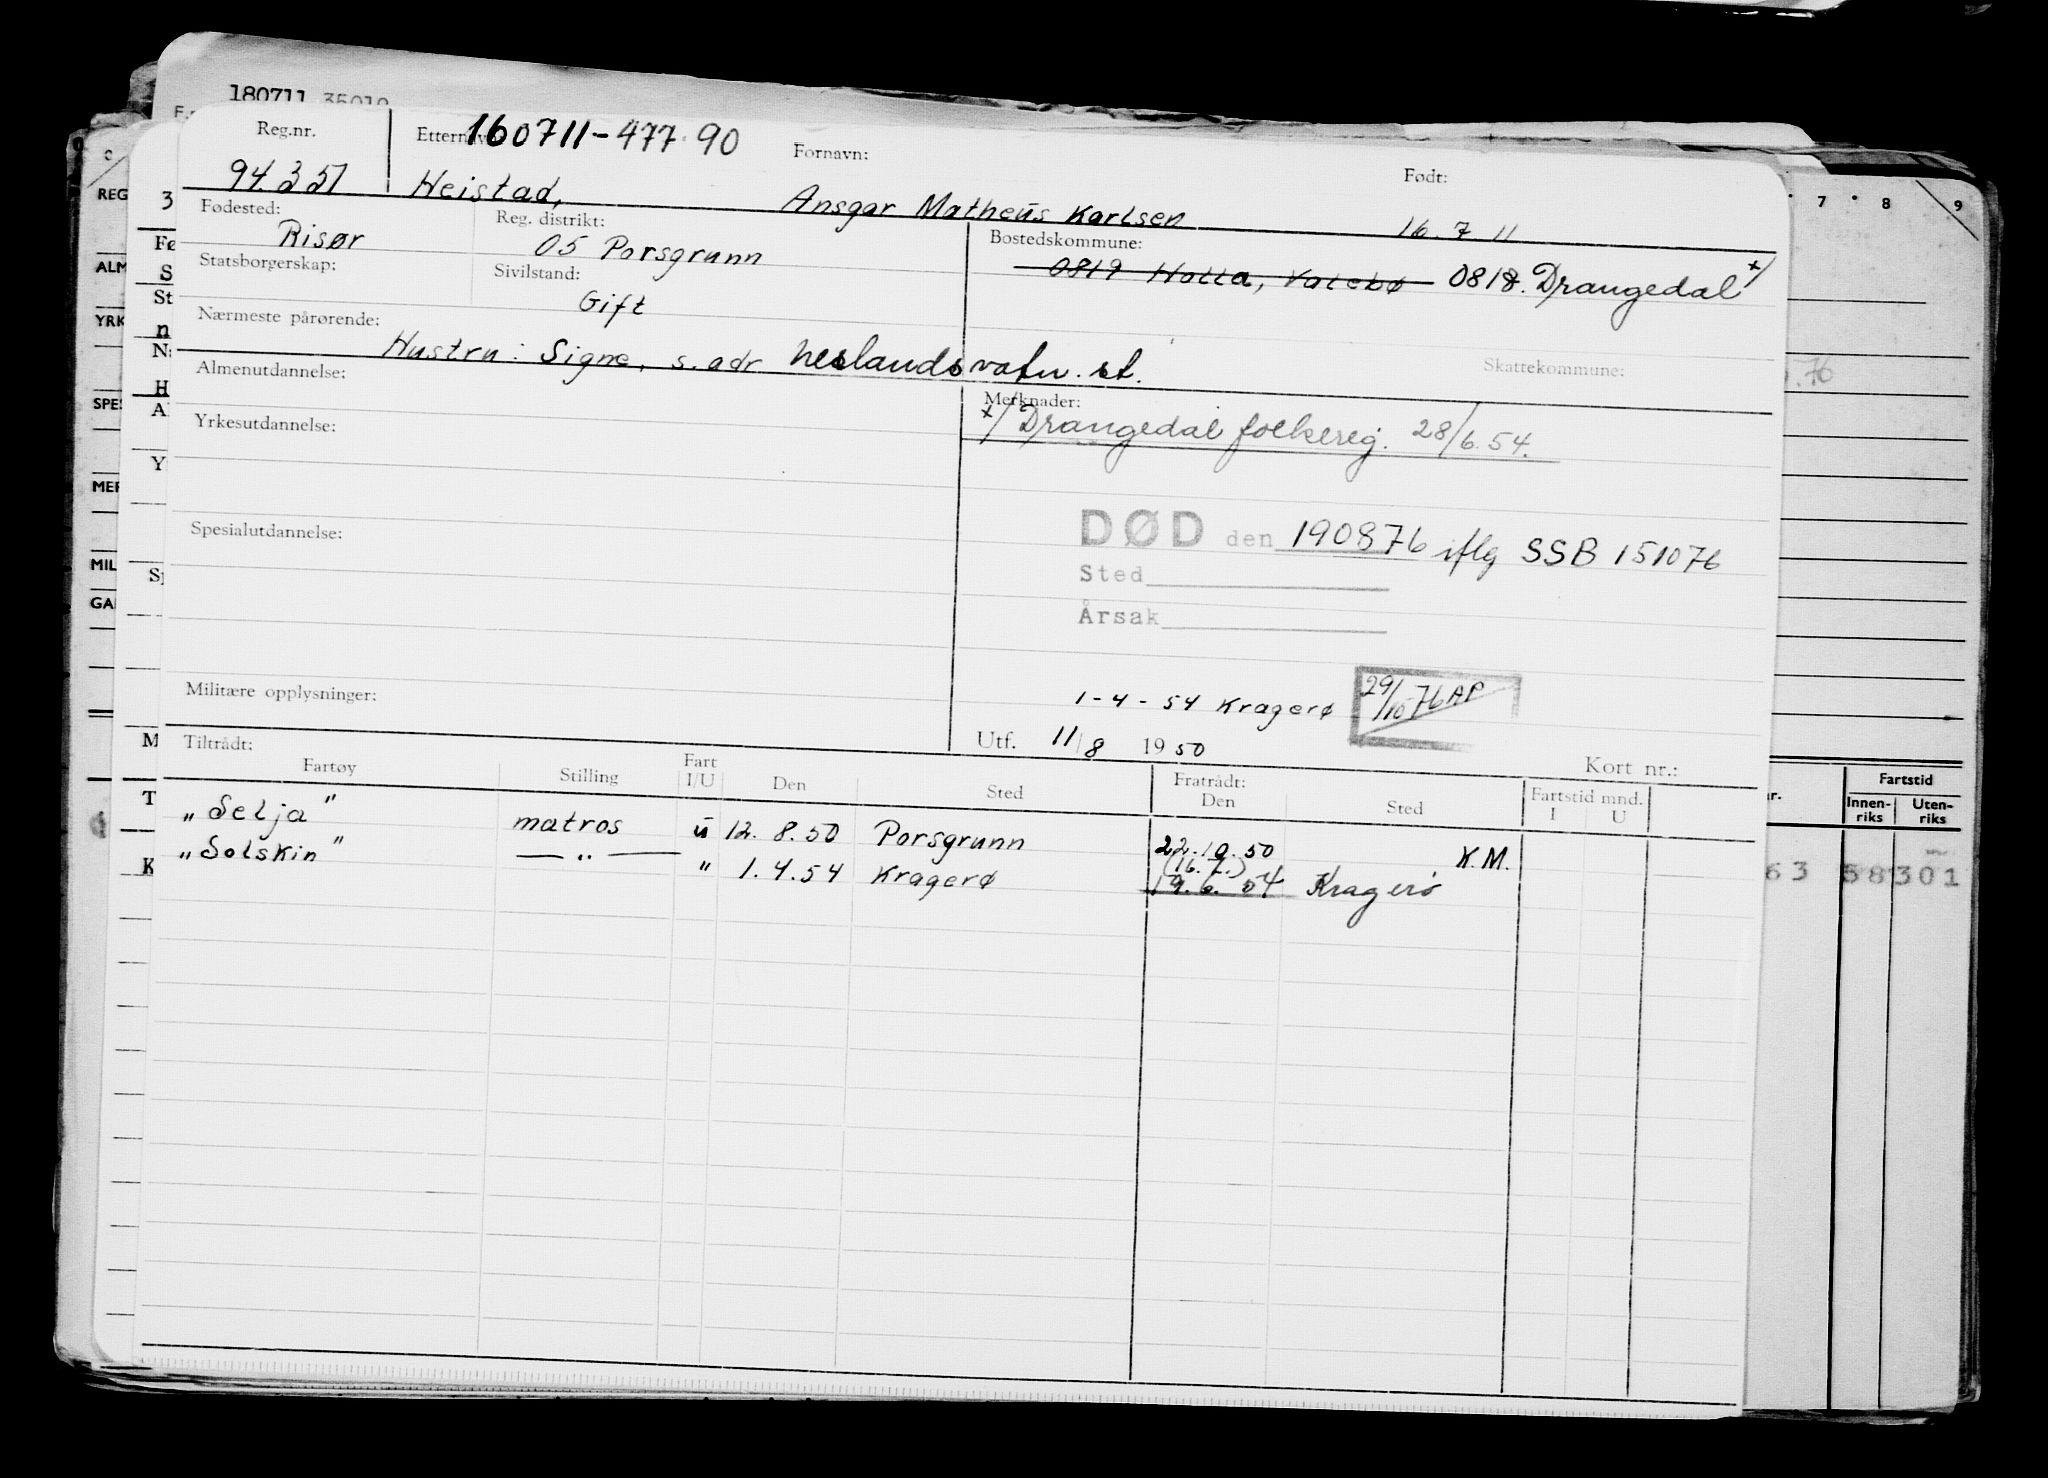 180711 35019
Reg.nr. Etternavn: 160711-477 90 Fornavn: Født:
94.351 Heistad, Ansgar Matheus Karlsen 16.7 11
Fødested: Risør Reg. distrikt: 05 Porsgrunn Bostedskommune:
0819 Holla, Valebø 0818. Drangedal x/
Statsborgerskap: Sivilstand: Gift
Nærmeste pårørende:
Hustru: Signe, s. adr Neslandsvatn. st.
Skattekommune:
Almenutdannelse: Merknader:
x/ Drangedal folkereg. 28/6.54.
Yrkesutdannelse:
DØD den 190876 iflg SSB 151076
Spesialutdannelse:
Sted
Årsak
Militære opplysninger:
1-4-54 Kragerø 29/10 76 AP
Utf. 11/8 1950
Kort nr.:
Tiltrådt: Fratrådt:
Fartøy Stilling Fart I/U Den Sted Den Sted Fartstid mnd. I U
"Selja" matros u 12.8.50 Porsgrunn 22.10.50 K.M.
(16.7.)
"Solskin" — " — " 1.4.54 Kragerø 19.6.54 Kragerø
7 8 9
REG
ALM
YRK
SPES
MER
MIL
GA
.76
Fartstid
Innen-riks Uten-riks
63 58 301